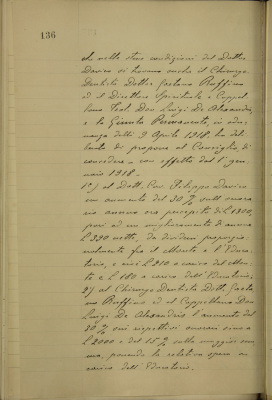 136
che nelle stesse condizioni del Dottor
Davico si trovano anche il Chirurgo
Dentista Dottor Gaetano Ruffino
ed il Direttore Spirituale e Cappel-
lano Teol. Don Luigi De Alexandris
e la Giunta Permanente, in adu-
nanza delli 9 Aprile 1918, ha deli-
berato di proporre al Consiglio di
concedere con effetto dal 1° gen-
naio 1918 -
1°) al Dott. Cav. Filippo Davico
un aumento del 30% sull'onora-
rio annuo ora percepito di L 1300,
pari ad un miglioramento di annue
L 390 nette, da dividersi proporzio-
nalmente fra il Albergo e l'Educa-
torio, e cioè L 210 a carico del Alber-
go e L 180 a carico dell'Educatorio,
2°) al Chirurgo Dentista Dott. Gaeta-
no Ruffino ed al Cappellano Don
Luigi De Alexandris l'aumento del
30% sui rispettivi onorari sino a
L 2000 e del 15% sulla maggior som-
ma, ponendo la relativa spesa a
carico dell'Educatorio.